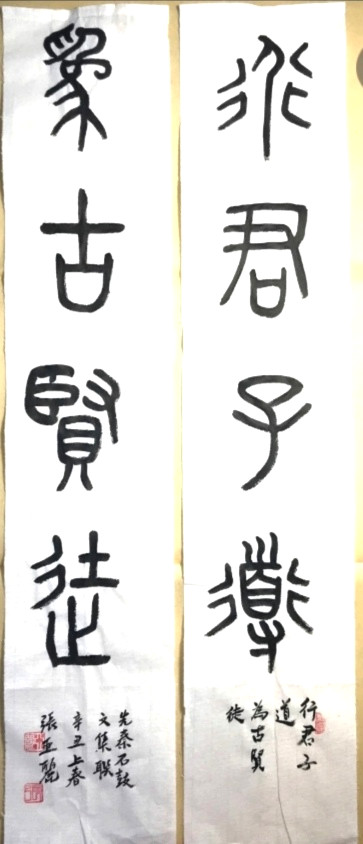 行君子道
為古賢徒
行君子
道
為古賢
徒
先秦石鼓
文集聯
辛丑上春
張亚麗